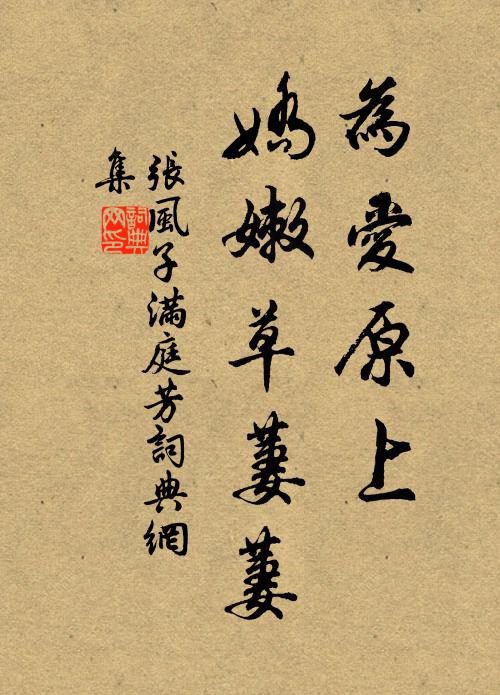 為愛原上
嬌嫩草萋萋
張風子滿庭芳詞典網
集
詞典
网印